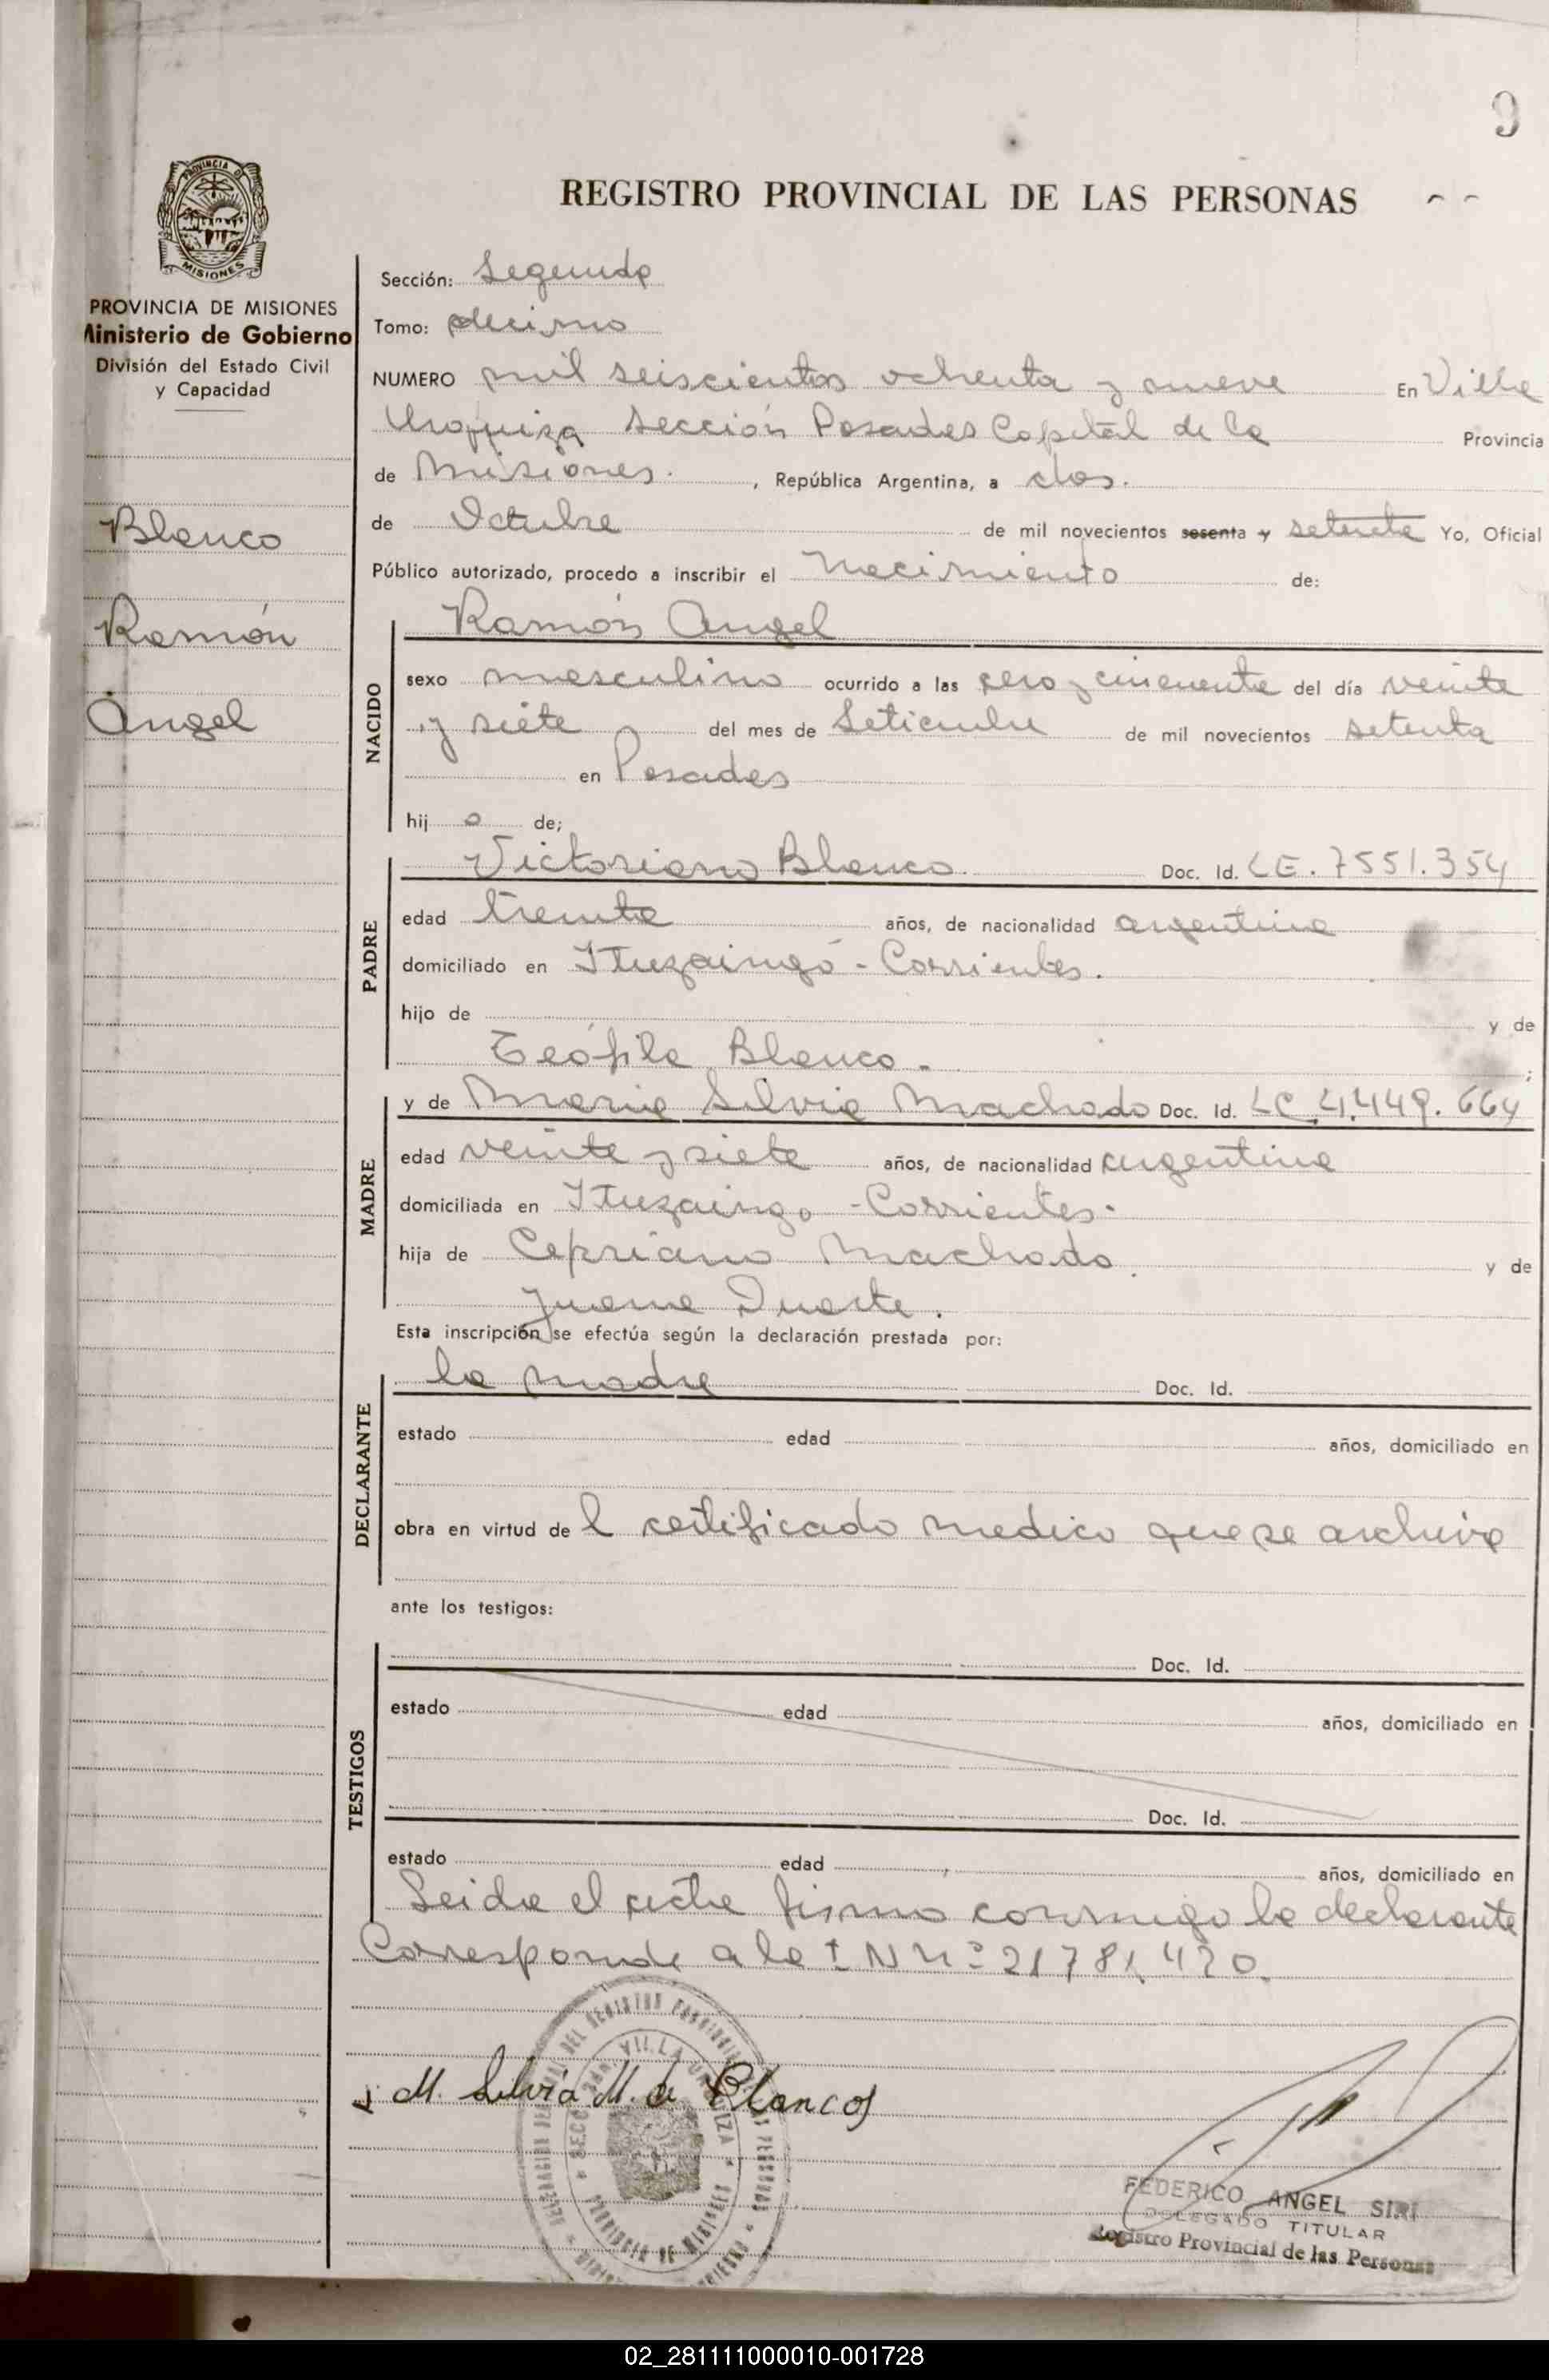 9
REGISTRO PROVINCIAL DE LAS PERSONAS
PROVINCIA DE MISIONES
Ministerio de Gobierno
División del Estado Civil
y Capacidad
Blanco
Ramón
Angel
Sección: Segunda
Tomo: décimo
NUMERO mil seiscientos ochenta y nueve En Villa
Urquiza Sección Posadas Capital de la Provincia
de Misiones. , República Argentina, a dos.
de Octubre de mil novecientos sesenta y setenta Yo, Oficial
Público autorizado, procedo a inscribir el Nacimiento de:
NACIDO
Ramón Angel
sexo masculino ocurrido a las cero y cincuenta del día veinte
y siete del mes de Setiembre de mil novecientos setenta
en Posadas
hij o de;
PADRE
Victoriano Blanco Doc. Id. LE. 7551.354
edad treinta años, de nacionalidad argentina
domiciliado en Ituzaingó - Corrientes.
hijo de y de
Teófila Blanco.
MADRE
y de Maria Silvia Machado Doc. Id. LC 4.449.664
edad veinte y siete años, de nacionalidad argentina
domiciliada en Ituzaingo - Corrientes.
hija de Cepriano Machado. y de
Juana Duarte.
Esta inscripción se efectúa según la declaración prestada por:
DECLARANTE
la madre Doc. Id.
estado edad años, domiciliado en
obra en virtud de l certificado medico que se archiva
ante los testigos:
TESTIGOS
Doc. Id.
estado edad años, domiciliado en
Doc. Id.
estado edad años, domiciliado en
Leida el acta firma conmigo la declarante
Corresponde a la I N nº 21781.420.
M. Silvia M. de Blanco
VILLA URQUIZA
PROVINCIA DE MISIONES
FEDERICO ANGEL SIRI
DELEGADO TITULAR
Registro Provincial de las Personas
02_281111000010-001728